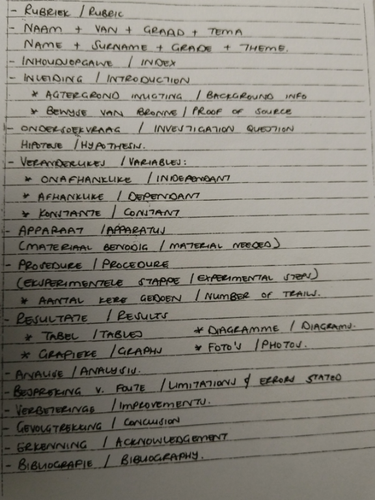 - RUBRIEK / RUBRIC
- NAAM + VAN + GRAAD + TEMA
NAME + SURNAME + GRADE + THEME.
- INHOUDSOPGAWE / INDEX
- INLEIDING / INTRODUCTION
* AGTERGROND INLIGTING / BACKGROUND INFO
* BEWYSE VAN BRONNE / PROOF OF SOURCE
- ONDERSOEKVRAAG / INVESTIGATION QUESTION
HIPOTESE / HYPOTHESIS.
- VERANDERLIKES / VARIABLES:
* ONAFHANKLIKE / INDEPENDANT
* AFHANKLIKE / DEPENDANT
* KONSTANTE / CONSTANT
- APPARAAT / APPARATUS
(MATERIAAL BENODIG / MATERIAL NEEDED)
- PROSEDURE / PROCEDURE
(EKSPERIMENTELE STAPPE / EXPERIMENTAL STEPS)
* AANTAL KERE GEDOEN / NUMBER OF TRAILS.
- RESULTATE / RESULTS
* TABEL / TABLES * DIAGRAMME / DIAGRAMS.
* GRAFIEKE / GRAPHS * FOTO'S / PHOTOS.
- ANALISE / ANALYSIS.
- BESPREKING V. FOUTE / LIMITATIONS & ERRORS STATED
- VERBETERINGS / IMPROVEMENTS.
- GEVOLGTREKKING / CONCLUSION
- ERKENNING / ACKNOWLEDGEMENT
- BIBLIOGRAFIE / BIBLIOGRAPHY.